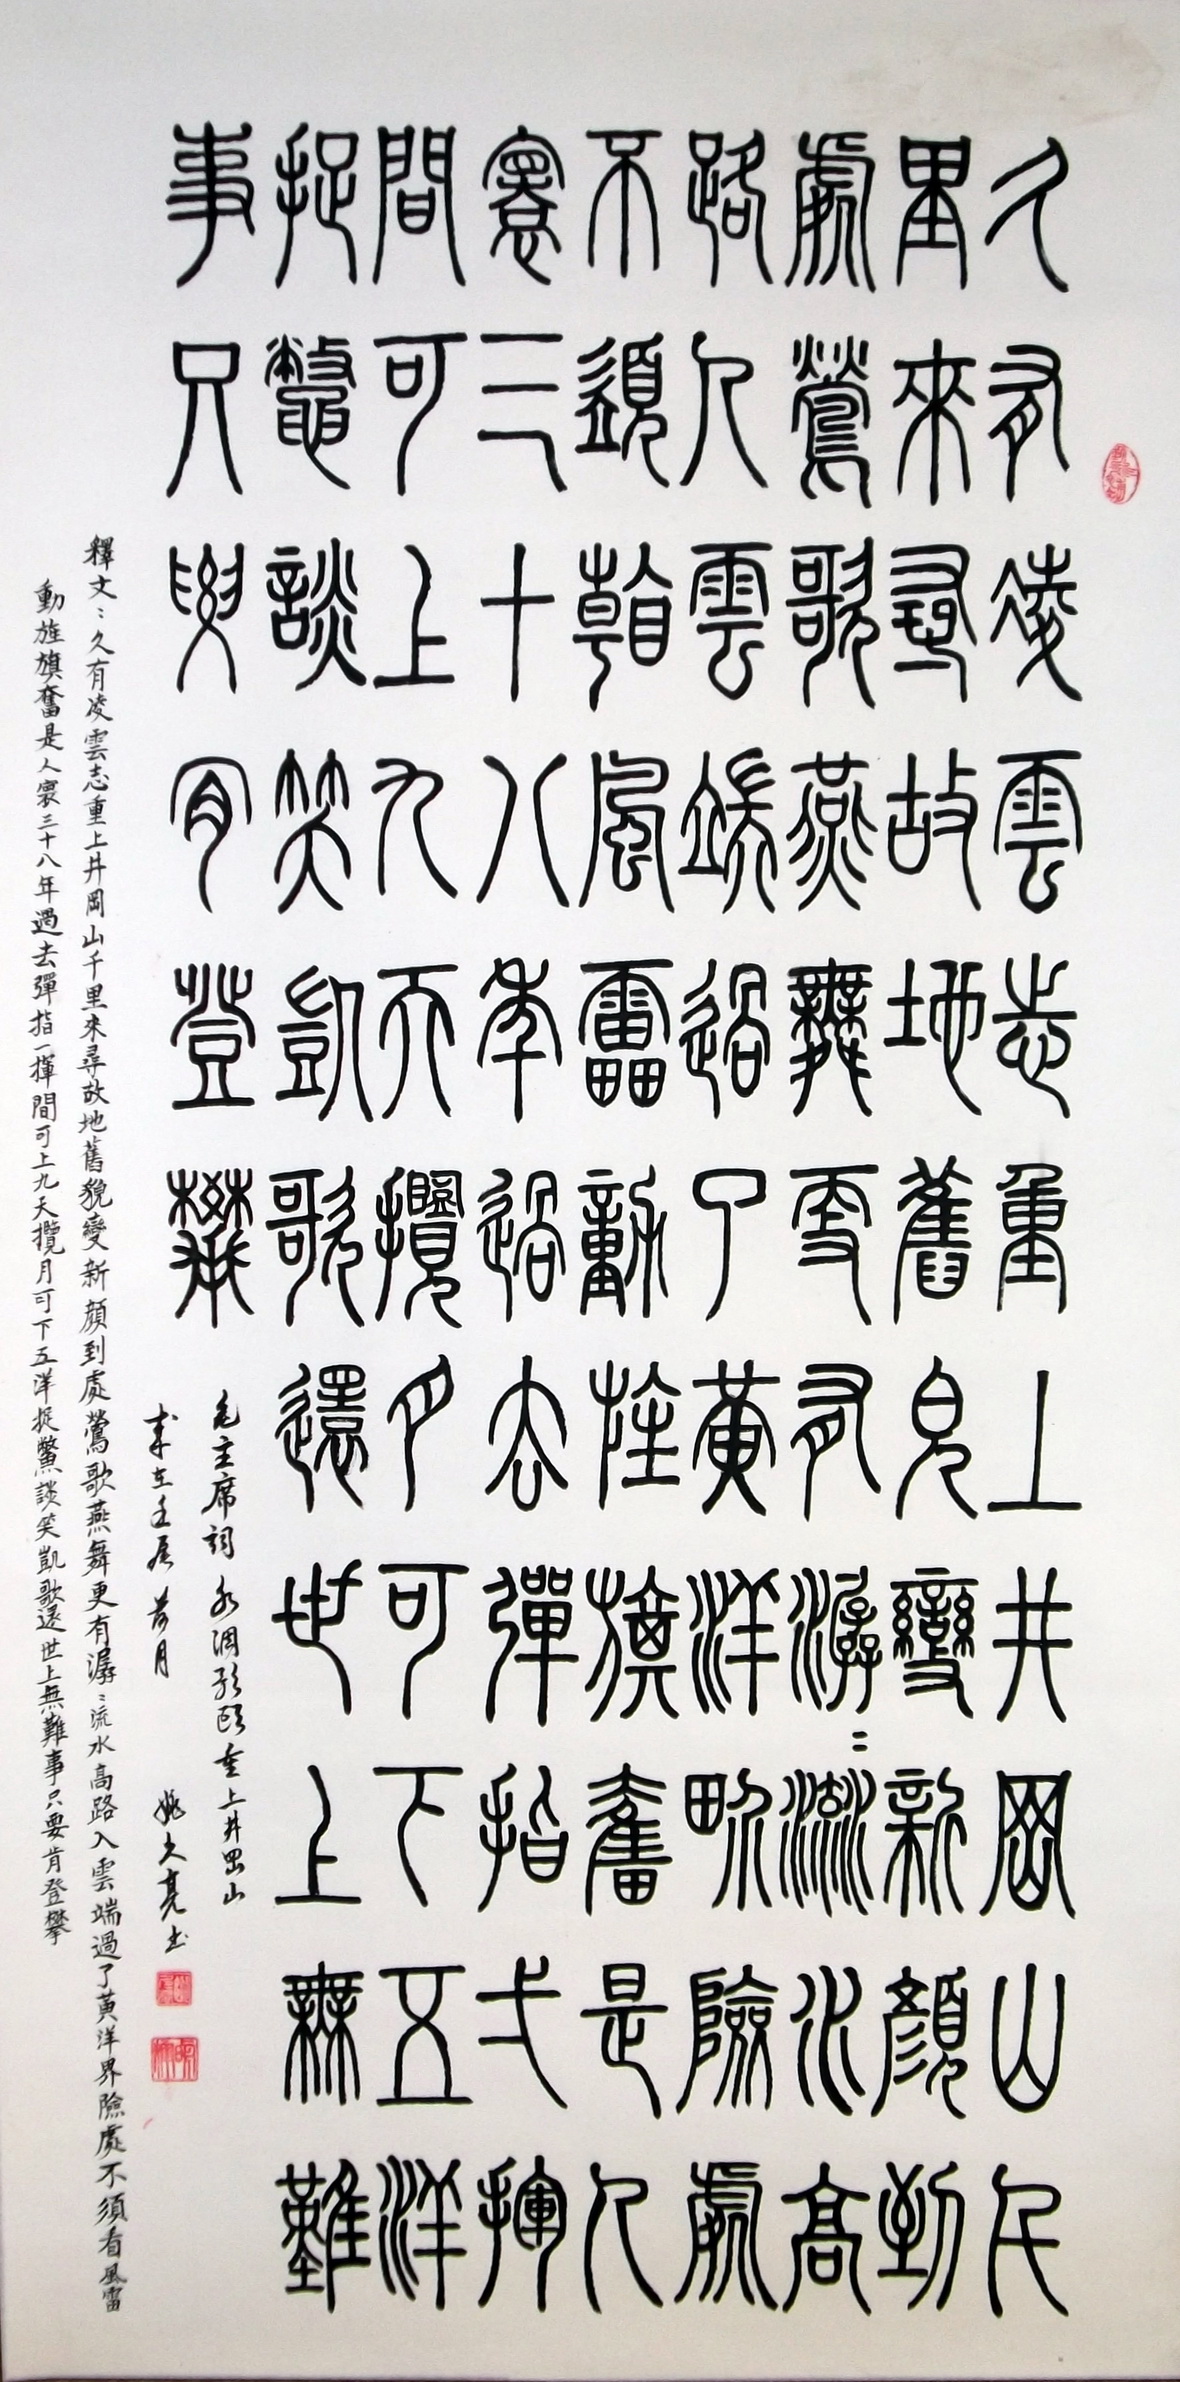 久有凌雲志重上井岡山千
里來尋故地舊皃變新顏到
處鶯歌燕舞更有潺〻流水高
路入雲端過了黃洋界險處
不須看風雷動旌旗奮是人
寰三十八年過去彈指一揮
間可上九天攬月可下五洋
捉鱉談笑凱歌還世上無難
事只要肯登攀
毛主席詞水調歌頭重上井岡山
姚大亮書
釋文：久有凌雲志重上井岡山千里來尋故地舊貌變新顏到處鶯歌燕舞更有潺〻流水高路入雲端過了黃洋界險處不須看風雷
動旌旗奮是人寰三十八年過去彈指一揮間可上九天攬月可下五洋捉鱉談笑凱歌還世上無難事只要肯登攀